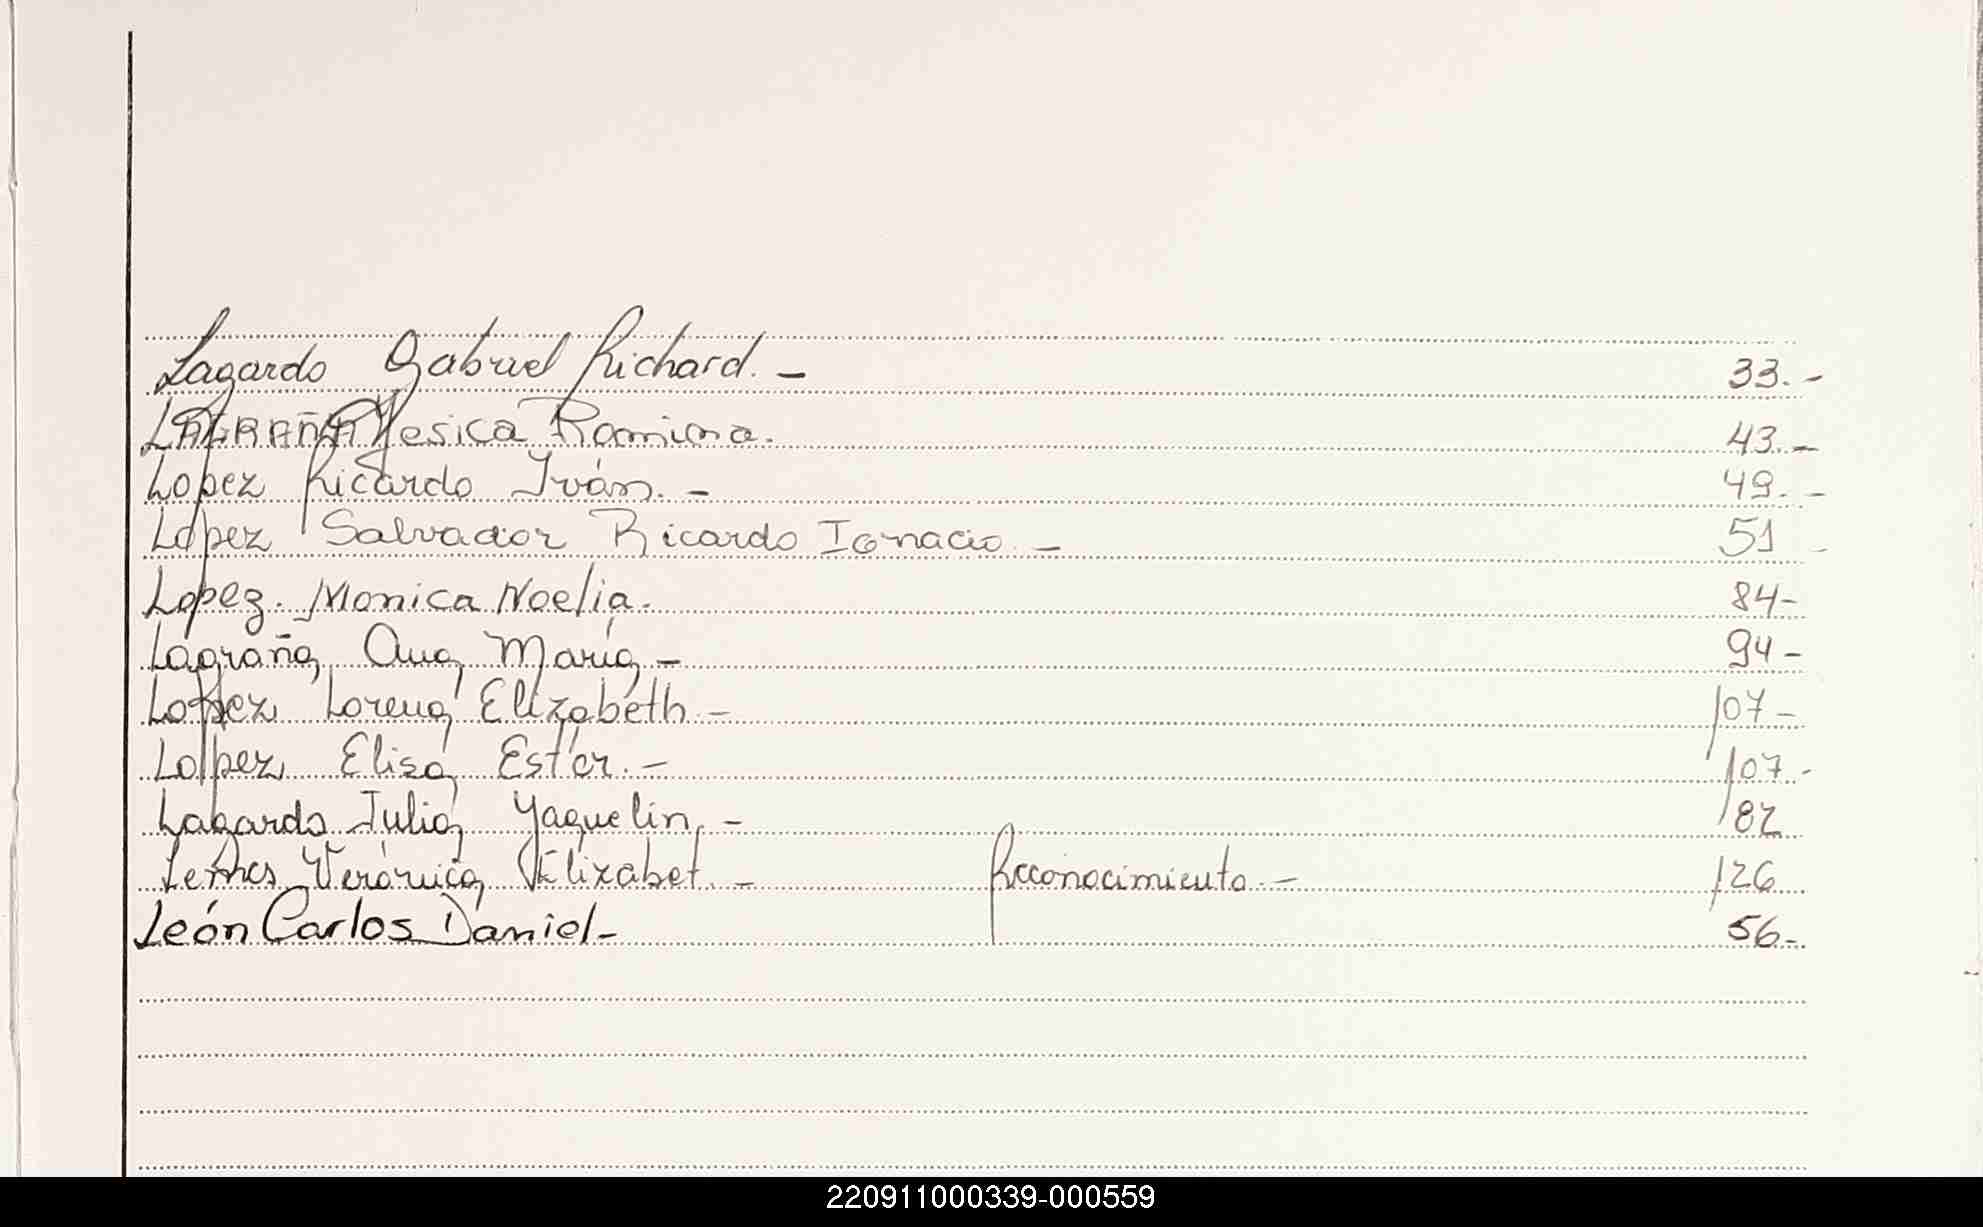 Lagardo Gabriel Richard. - 33. -
LAGRAÑA Yesica Romina. 43. -
Lopez Ricardo Iván. - 49. -
Lopez Salvador Ricardo Ignacio - 51 -
Lopez. Monica Noelia. 84-
Lagraña Ana María - 94-
Lopez Lorena Elizabeth - 107-
Lopez Elisa Ester. - 107. -
Lagardo Julia Yaquelin, - 82
Lemes Verónica Elizabet. - Reconocimiento. - 126
León Carlos Daniel- 56-
220911000339-000559